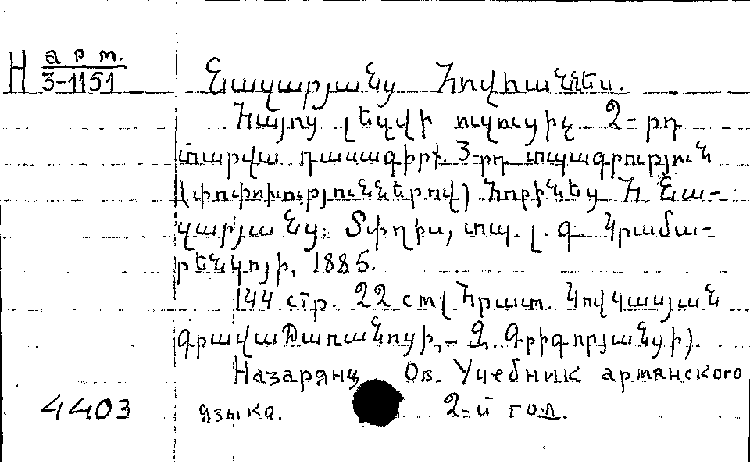 H арт.
3-1151
Նազարյանց Հովհաննես.
Հայոց լեզվի ուսուցիչ 2-րդ
տարվա դասագիրք 3-րդ տպագրություն
(փոփոխություններով) Հորինեց Հ Նա-
զարյանց։ Տփղիս, տպ. լ. գ Կրամա-
րենկոյի, 1885.
144 стр. 22 см (Հրատ. Կովկասյան
գրավաճառանոցի, - Զ. Գրիգորյանցի).
Назарянц Ов. Учебник армянского
4403 языка. 2-й год.